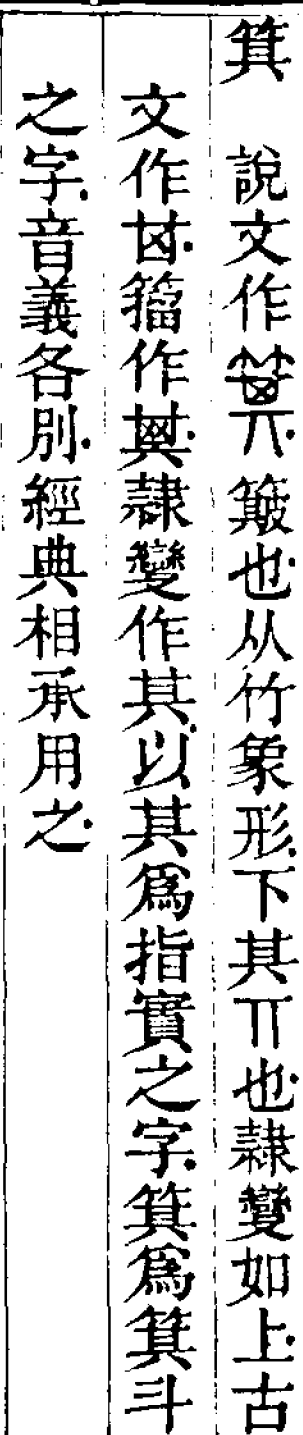 箕　說文作𥮉簸也从竹象形下其丌也隷變如上古
文作𠀠籀作𠔋隷變作其以其爲指實之字箕爲箕斗
之字音義各別經典相承用之